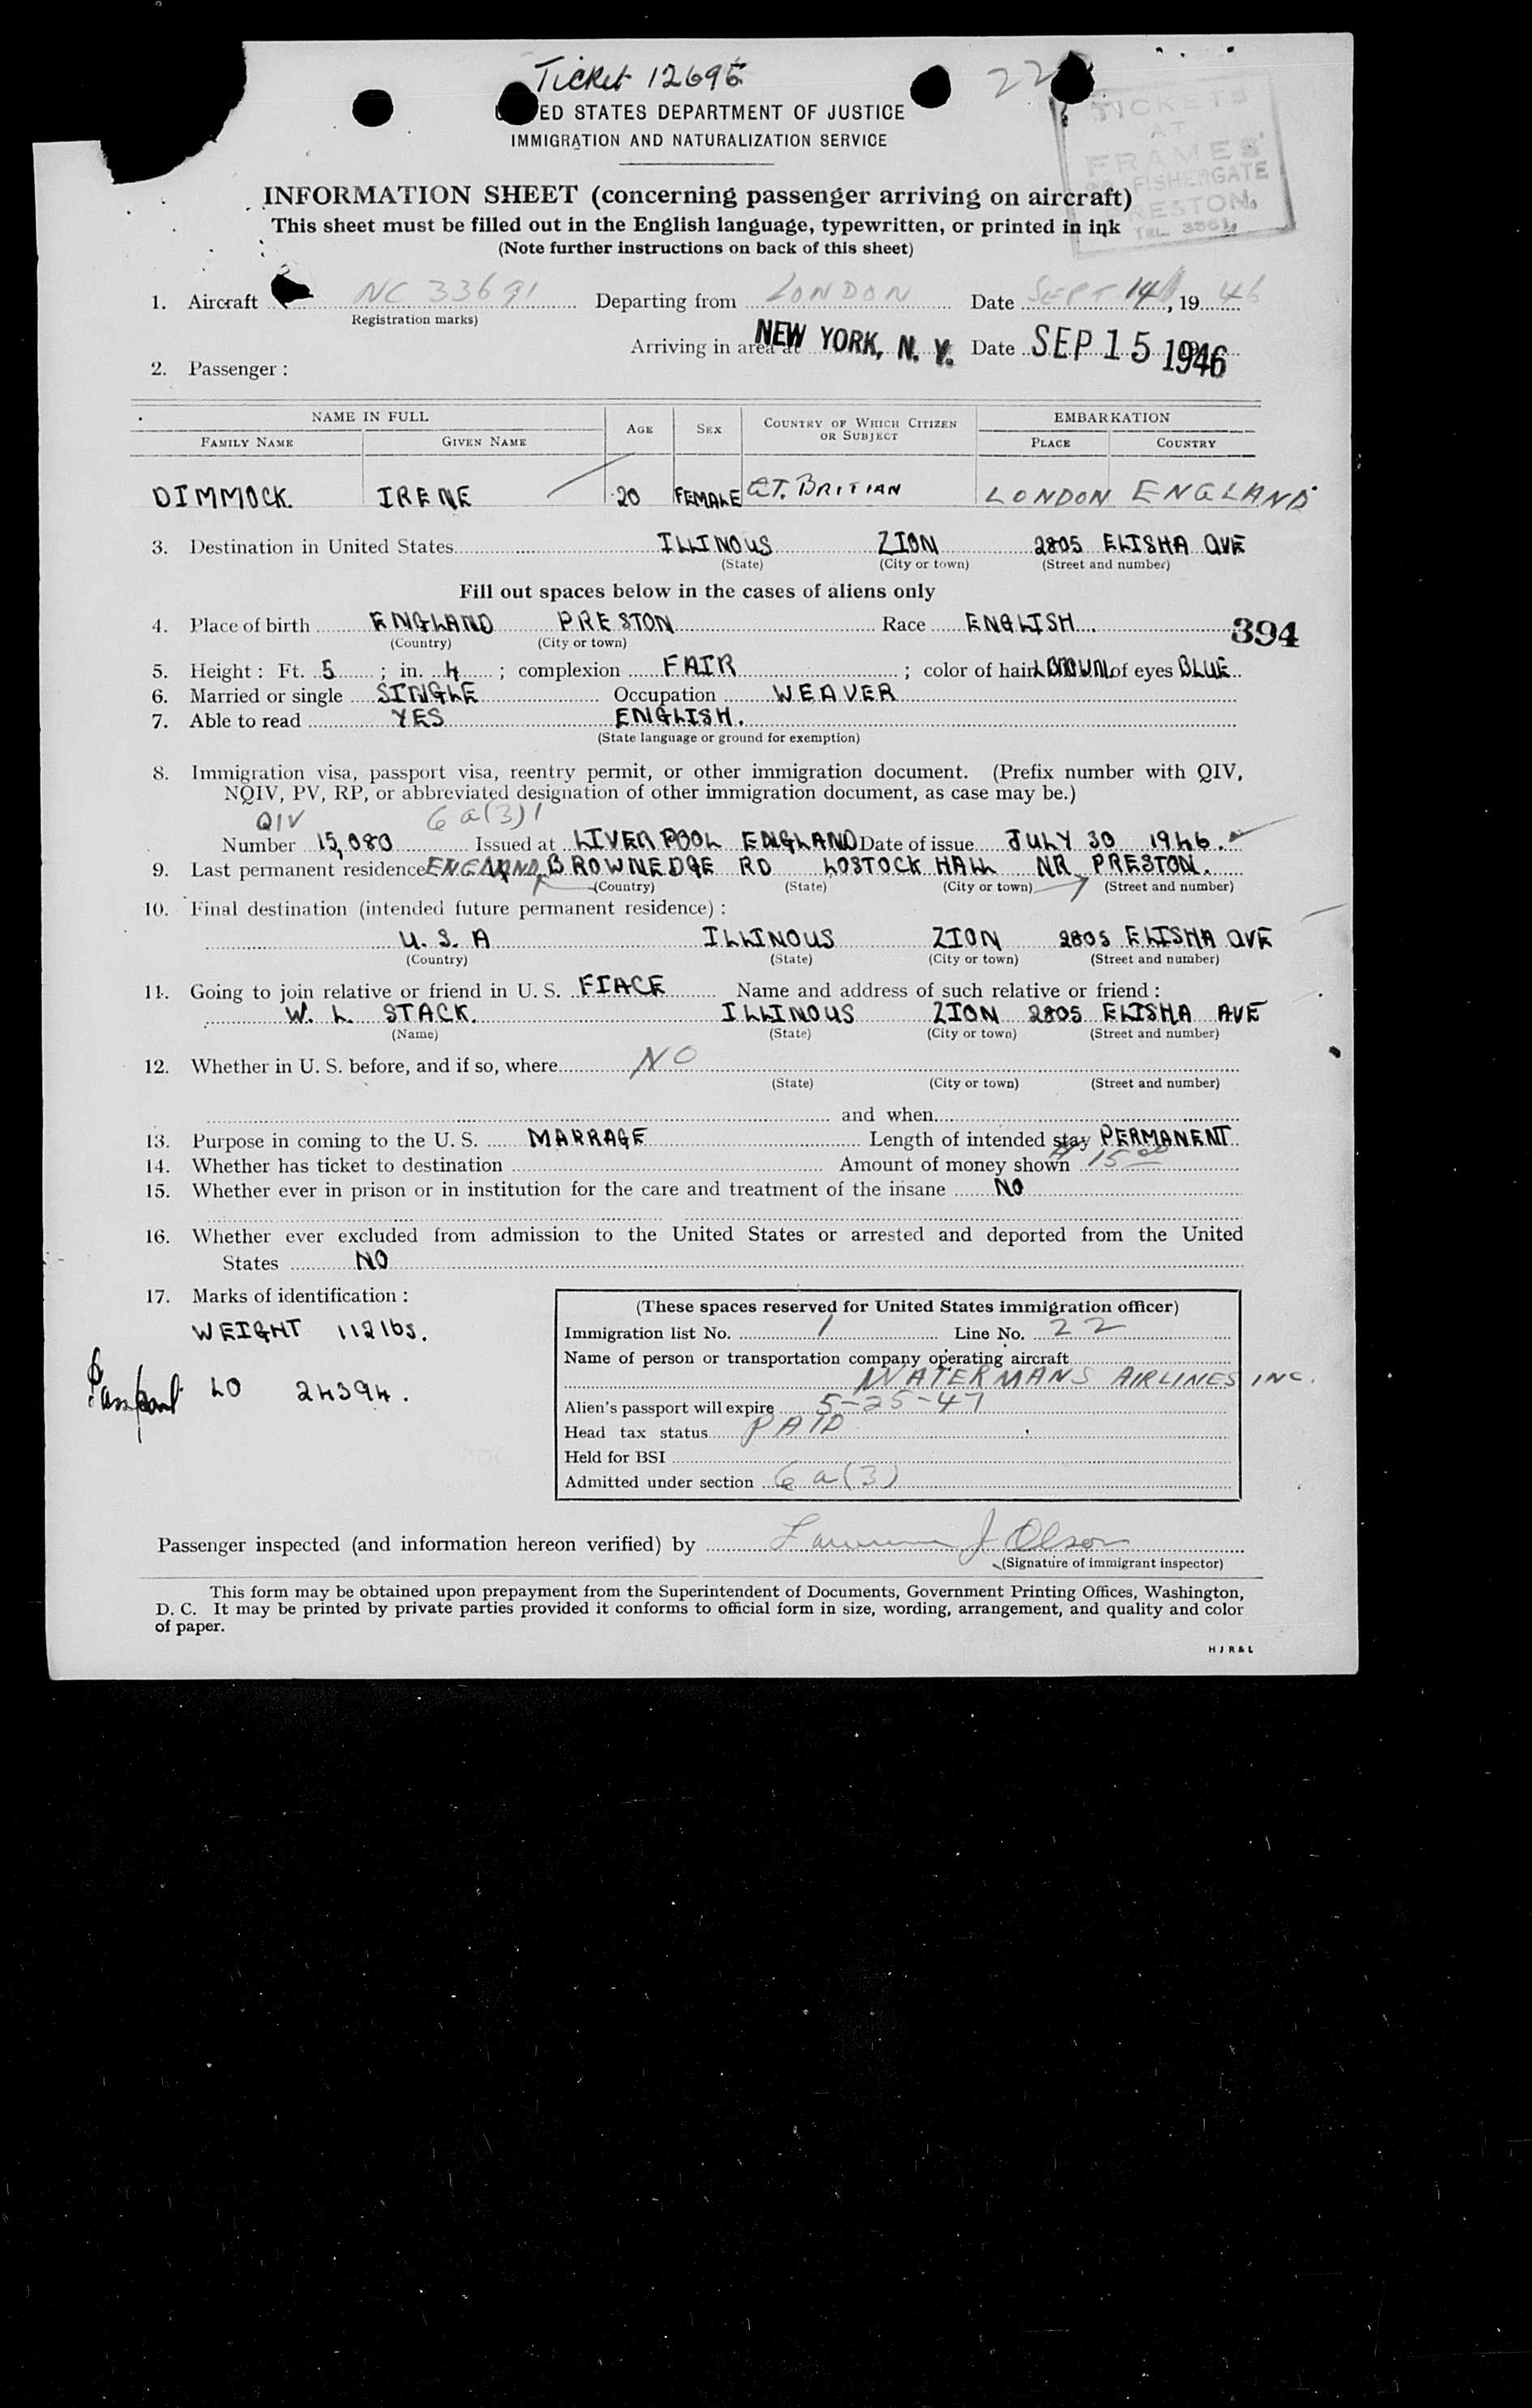 Ticket 12695
22
ED STATES DEPARTMENT OF JUSTICE
IMMIGRATION AND NATURALIZATION SERVICE
TICKETS
AT
FRAMES'
FISHERGATE
RESTON.
TEL. 3361.
INFORMATION SHEET (concerning passenger arriving on aircraft)
This sheet must be filled out in the English language, typewritten, or printed in ink
(Note further instructions on back of this sheet)
1. Aircraft NC 33691 Departing from LONDON Date SEPT 14, 1946
Registration marks)
Arriving in area at NEW YORK, N. Y. Date SEP 15 1946
2. Passenger:
NAME IN FULL AGE SEX COUNTRY OF WHICH CITIZEN OR SUBJECT EMBARKATION
FAMILY NAME GIVEN NAME PLACE COUNTRY
DIMMOCK. IRENE 20 FEMALE GT. BRITIAN LONDON ENGLAND
3. Destination in United States ILLINOUS ZION 2805 ELISHA AVE
(State) (City or town) (Street and number)
Fill out spaces below in the cases of aliens only
4. Place of birth ENGLAND PRESTON Race ENGLISH.
(Country) (City or town)
394
5. Height: Ft. 5; in. 4; complexion FAIR; color of hair L BROWN of eyes BLUE
6. Married or single SINGLE Occupation WEAVER
7. Able to read YES ENGLISH.
(State language or ground for exemption)
8. Immigration visa, passport visa, reentry permit, or other immigration document. (Prefix number with QIV,
NQIV, PV, RP, or abbreviated designation of other immigration document, as case may be.)
QIV 6a(3)1
Number 15,080 Issued at LIVERPOOL ENGLAND Date of issue JULY 30 1946.
9. Last permanent residence ENGLAND, BROWNEDGE RD LOSTOCK HALL NR PRESTON.
(Country) (State) (City or town) (Street and number)
10. Final destination (intended future permanent residence):
U. S. A ILLINOUS ZION 2805 ELISHA AVE
(Country) (State) (City or town) (Street and number)
11. Going to join relative or friend in U. S. FIACE Name and address of such relative or friend:
W. L. STACK. ILLINOUS ZION 2805 ELISHA AVE
(Name) (State) (City or town) (Street and number)
12. Whether in U. S. before, and if so, where NO
(State) (City or town) (Street and number)
and when
13. Purpose in coming to the U. S. MARRAGE Length of intended stay PERMANENT
14. Whether has ticket to destination Amount of money shown $15.00
15. Whether ever in prison or in institution for the care and treatment of the insane NO
16. Whether ever excluded from admission to the United States or arrested and deported from the United
States NO
17. Marks of identification:
WEIGHT 112 lbs.
Passport LO 24394.
(These spaces reserved for United States immigration officer)
Immigration list No. 1 Line No. 22
Name of person or transportation company operating aircraft
WATERMANS AIRLINES INC.
Alien's passport will expire 5-25-47
Head tax status PAID
Held for BSI
Admitted under section 6a(3)
Passenger inspected (and information hereon verified) by J Olson
(Signature of immigrant inspector)
This form may be obtained upon prepayment from the Superintendent of Documents, Government Printing Offices, Washington,
D. C. It may be printed by private parties provided it conforms to official form in size, wording, arrangement, and quality and color
of paper.
HJR&L